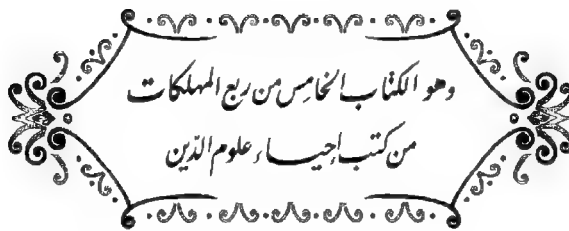 وهو الكتاب الخامس من ربع المهلكات
من كتب إحياء علوم الدين